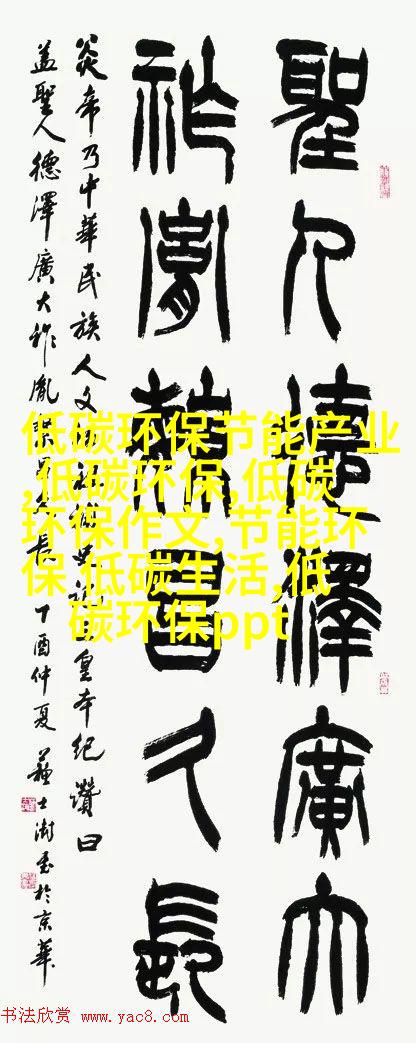 聖人德澤廣大
祚胤繁昌久長
炎帝乃中華民族人文皇本紀讚曰
蓋聖人德澤廣大祚胤繁昌久長 丁酉仲夏 蘇士澍書於京華
低碳环保节能产业
,低碳环保,低碳
环保作文,节能环
保,低碳生活,低
碳环保ppt
书法欣赏 www.yac8.com